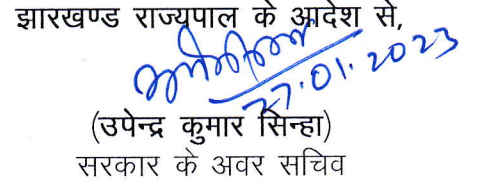 झारखण्ड राज्यपाल के आदेश से,
27.01.2023
(उपेन्द्र कुमार सिन्हा)
सरकार के अवर सचिव